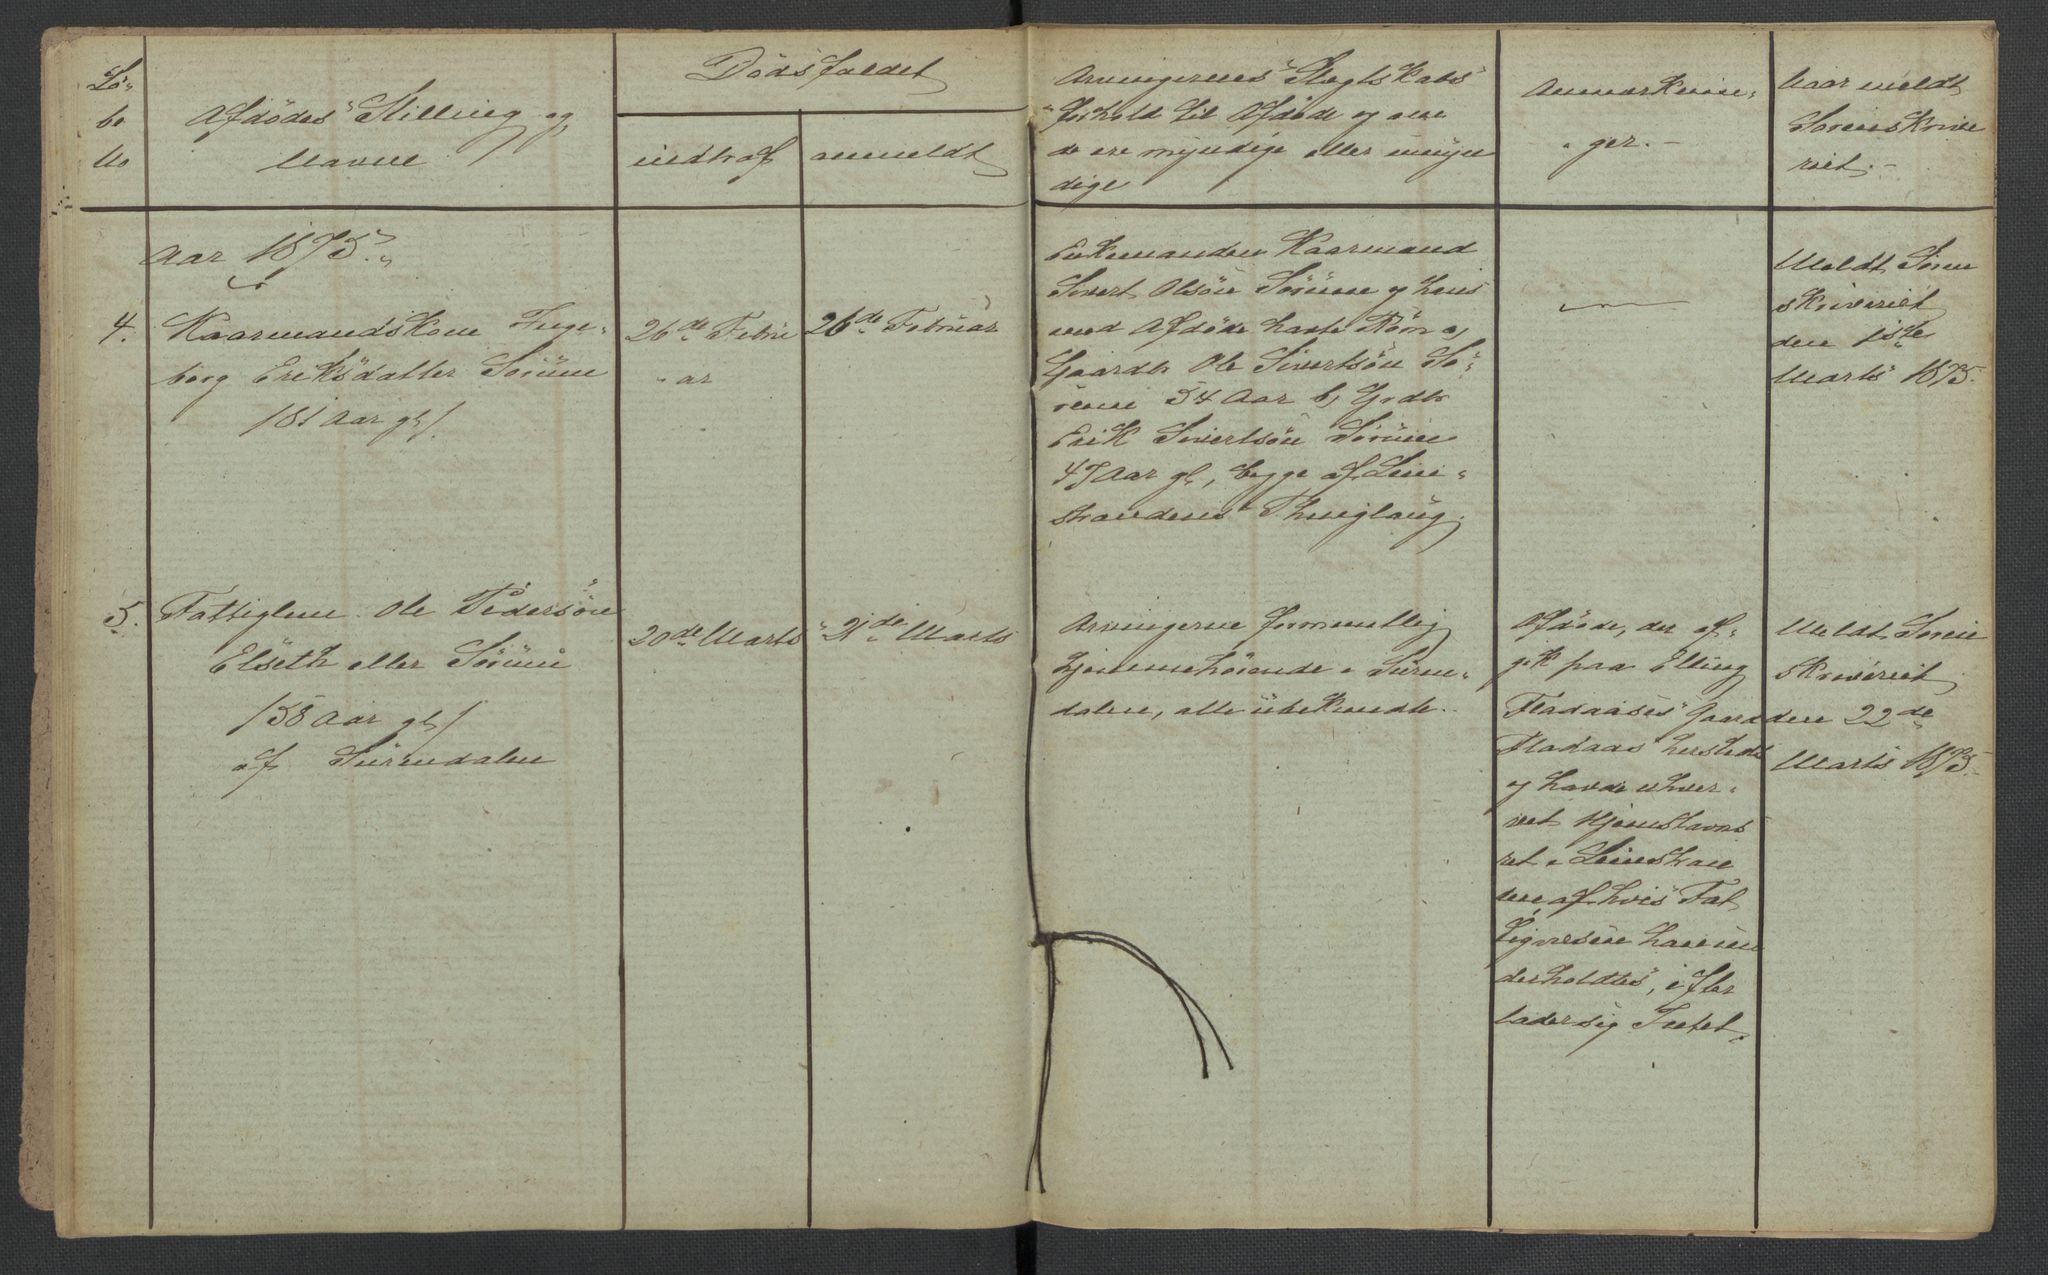 Lö-
be
No
Afdödes Stilling og
Navne
Dödsfaldet
indtraf
anmeldt
Arvingernes Slegtskabs
forhold til Afdöde og om
de ere myndige eller umyn
dige
Anmærknin-
ger.-
Naar meldt
Sorenskrive
riet.-
Aar 1875.
4.
Kaarmandskone Inge-
borg Eriksdatter Sörum
/81 Aar gl/.
26de Febru
ar
26de Februar
Enkemanden Kaarmand
Sivert Olsön Sörum og hans
med Afdöde havte Börn a,
Gaardbr Ole Sivertsön Sö-
rum 54 Aar b, Grdbr
Erik Sivertsön Sörum
47 Aar gl, begge af Lein-
strandens Thinglaug.
Meldt Soren
skriveriet
den 1ste
Marts 1875.
5.
Fattiglem Ole Pedersön
Elseth eller Sörum
/58 Aar gl/
af Surendalen
20de Marts
21de Marts
Arvingerne formentlig
hjemmehörende i Suren-
dalen, alle ubekjendte.
Afdöde, der af-
gik paa Elling
Fladaases Gaard
Fladaas herstedt
og havde erhver-
vet Hjemstavns
ret i Leinstran
den af hvis Fat
tigvæsen han un
derholdtes, efter
lader sig Intet.
Meldt Soren
skriveriet
den 22de
Marts 1875.